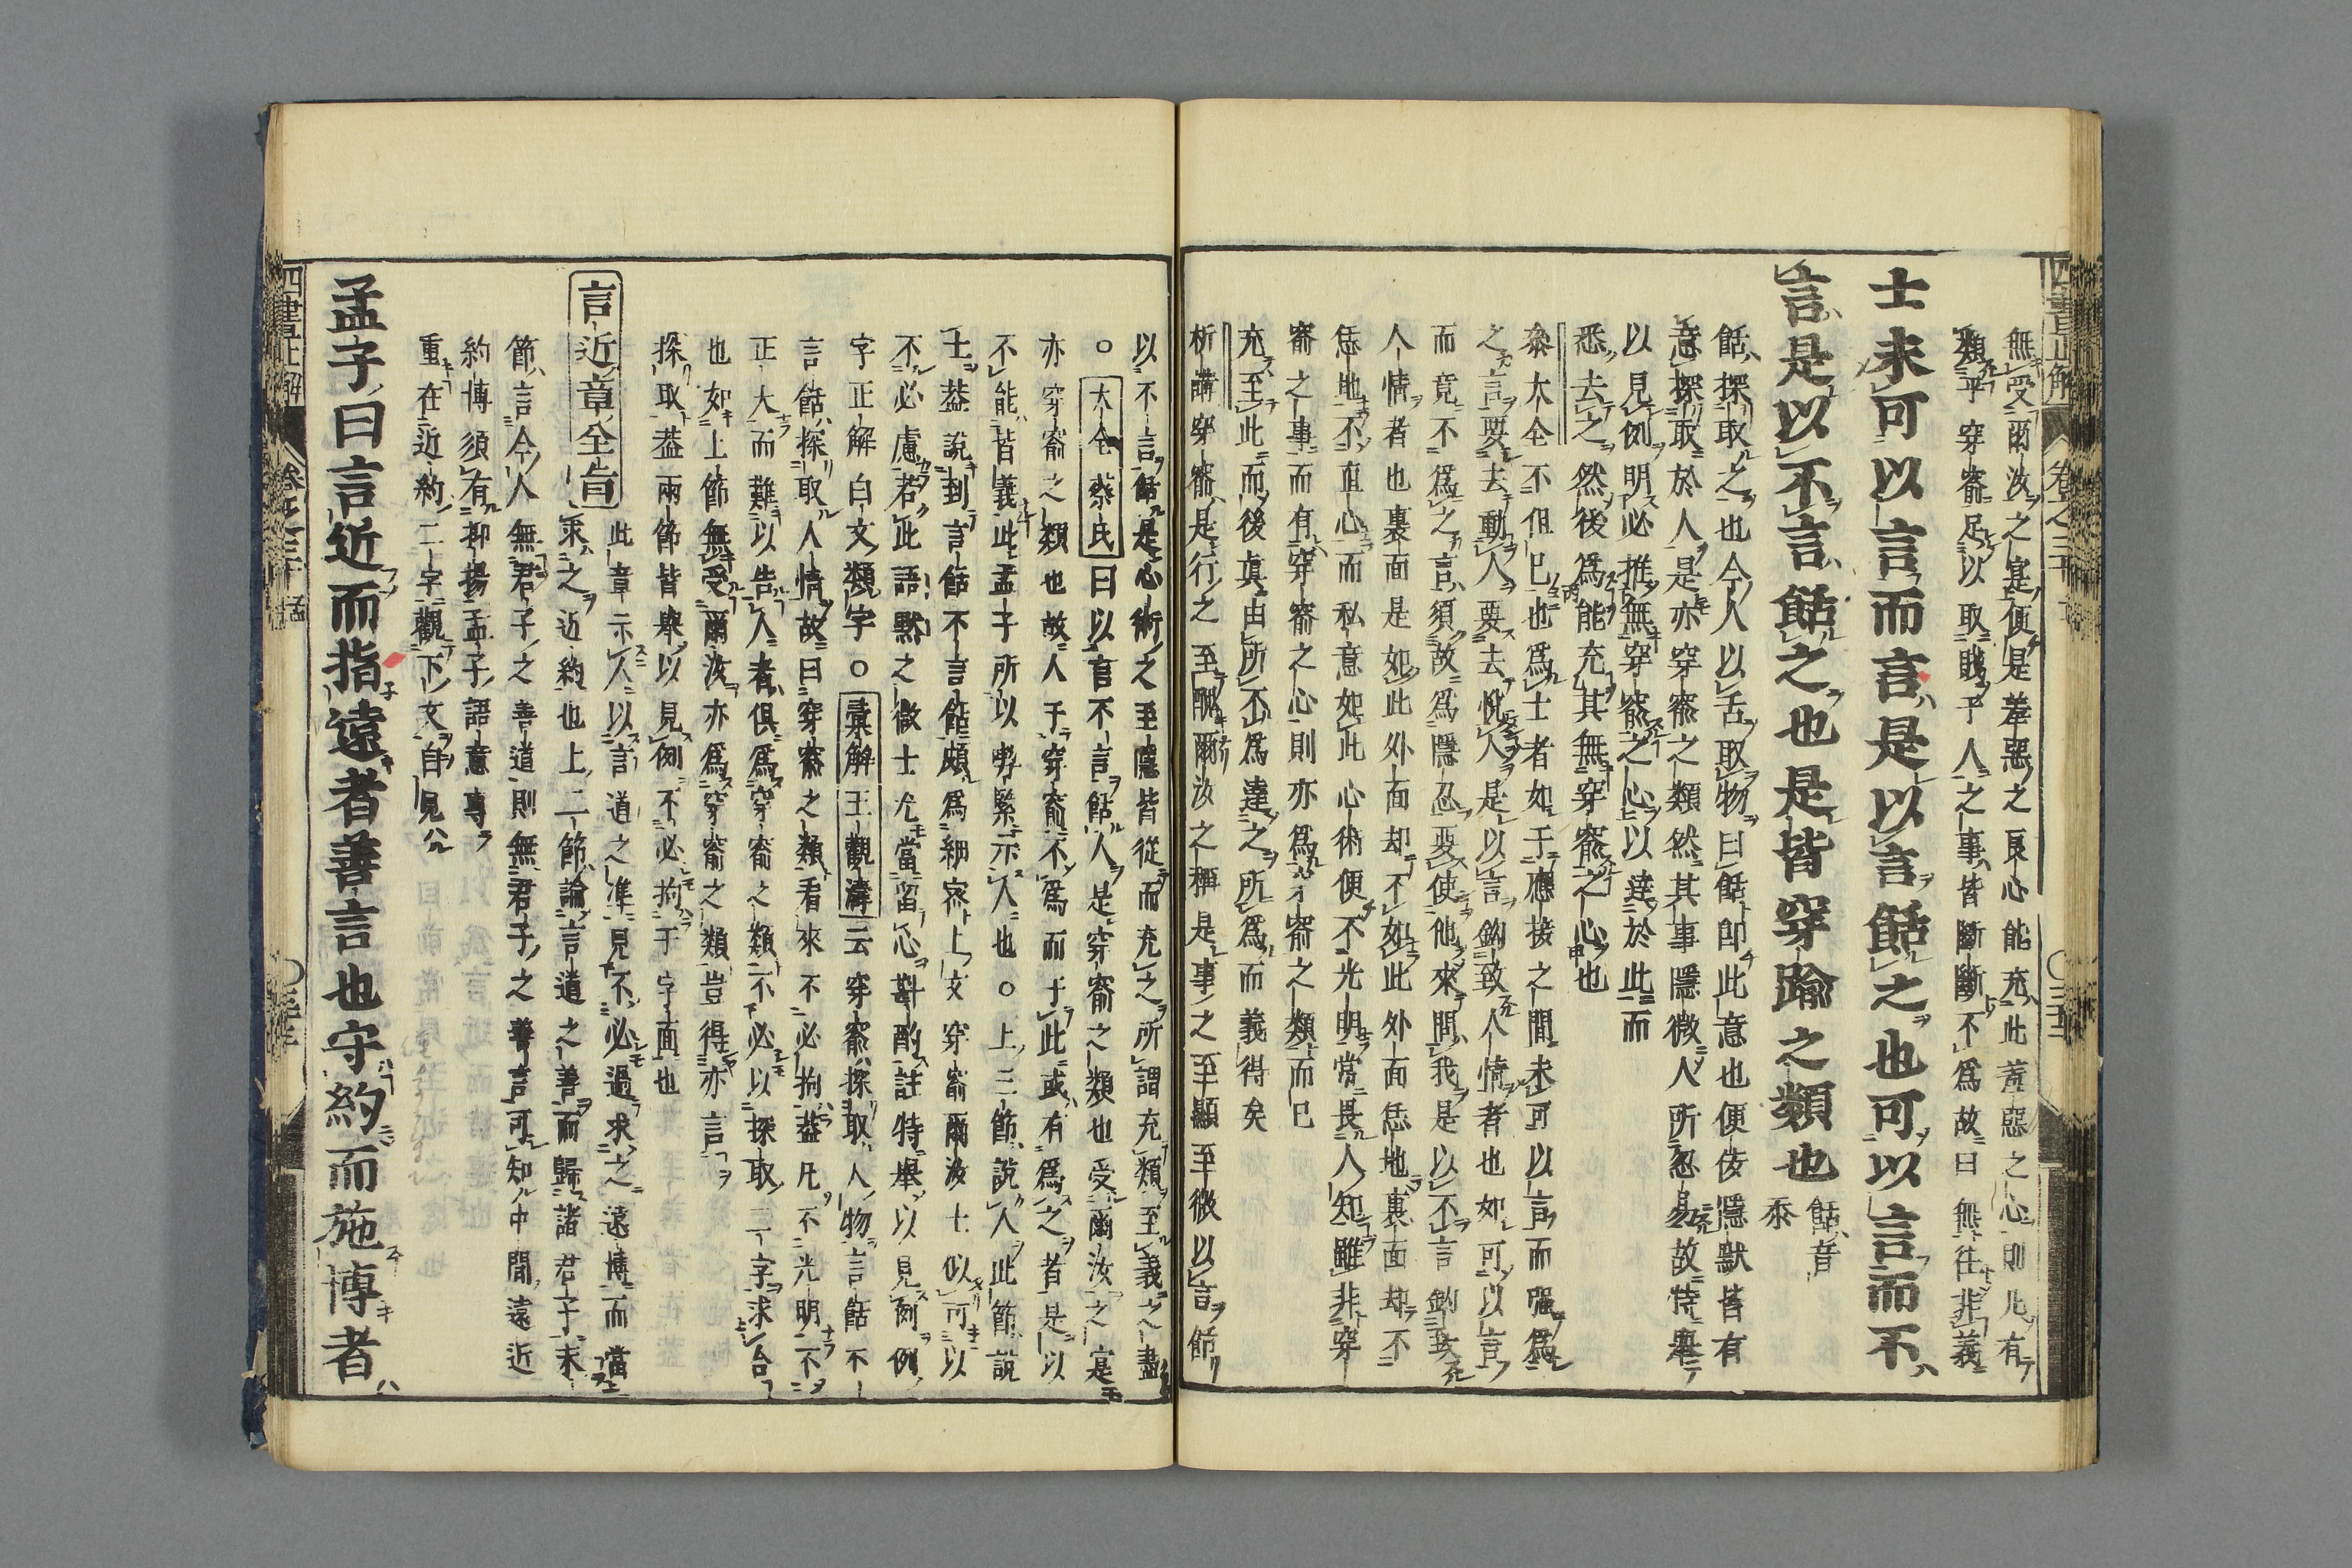 無受爾汝之寔便是羞惡之良心能充此羞惡之心則凡有
類乎穿窬足以取賤于人之事皆斷斷不爲故曰無往非義
士未可以言而言是以言餂之也可以言而不
言是以不言餂之也是皆穿踰之類也
餂音
忝
餂探取之也今人以舌取物曰餂卽此意也便佞隱默皆有
意探取於人是亦穿窬之類然其事隱微人所忽易故特舉
以見例明必推無穿窬之心以達於此而
悉去之然後爲能充其無穿窬之心也
大全不但已也爲士者如于應接之間未可以言而强爲
之言要去動人要去悅人是以言鈎致人情者也如可以言
而竟不爲之言須故爲隱忍要使他來問我是以不言鈎致
人情者也裏面是如此外面却不如此外面恁地裏面却不
恁地不直心而私意如此心術便不光明常畏人知雖非穿
窬之事而有穿窬之心則亦爲穿窬之類而已
充至此而後眞由所不爲達之所爲而義得矣
析講穿窬是行之至醜爾汝之稱是事之至顯至微以言餂
以不言餂是心術之至隱皆從而充之所謂充類至義之盡
○大全蔡氏曰以言不言餂人是穿窬之類也受爾汝之寔
亦穿窬之類也故人于穿窬不爲而于此或有爲之者是以
不能皆義此孟子所以喫緊示人也○上三節說人此節說
士葢說到言餂不言餂頗爲細宻上文穿窬爾汝士似可以
不必慮若此語默之微士尤當留心斟酌註特舉以見例例
字正解白文類字○彙解王觀濤云穿窬探取人物言餂不
言餂探取人情故曰穿窬之類看來不必拘葢凡不光明不
正大而難以告人者俱爲穿窬之類不必以探取二字求合
也如上節無受爾汝亦爲穿窬之類豈得亦言
探取葢兩節皆舉以見例不必拘于字面也
言近章全旨
此章示人以言道之準見不必過求之遠博而當
求之近約也上二節論言道之善而歸諸君子末
節言今人無君子之善道則無君子之善言可知中間遠近
約博須有抑揚孟子語意專
重在近約二字觀下文自見
孟子曰言近而指遠者善言也守約而施博者
四書正解
卷之三十
四書正解